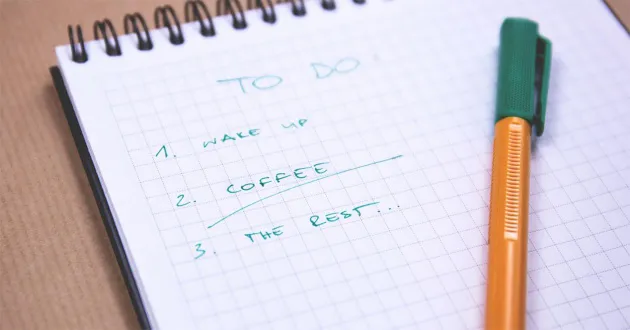 TO DO
1. WAKE UP
2. COFFEE
3. THE REST...